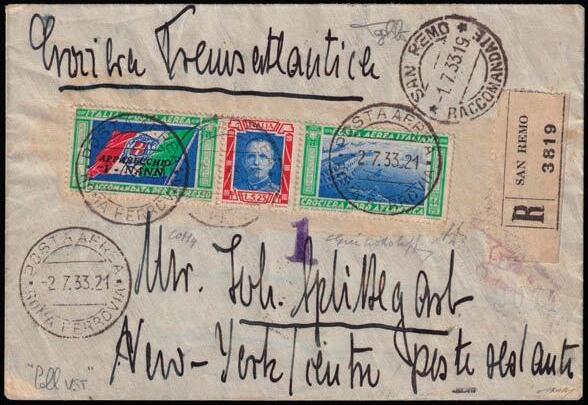 Crociera Transatlantica
SAN REMO
-1.7.33 19
* RACCOMANDATE *
ITALIA POSTA AEREA
APPARECCHIO
I-NANN
RACCOMANDATA AEREA
ITALIA
L.5,25
POSTA AEREA ITALIANA
CROCIERA AEREA TRANSATLANTICA
POSTA AEREA
-2.7.33.21
ROMA FERROVIA
R
SAN REMO
3819
1
POSTA AEREA
-2.7.33.21
ROMA FERROVIA
Mr. Joh. Splittegarb
New-York/centre poste restante